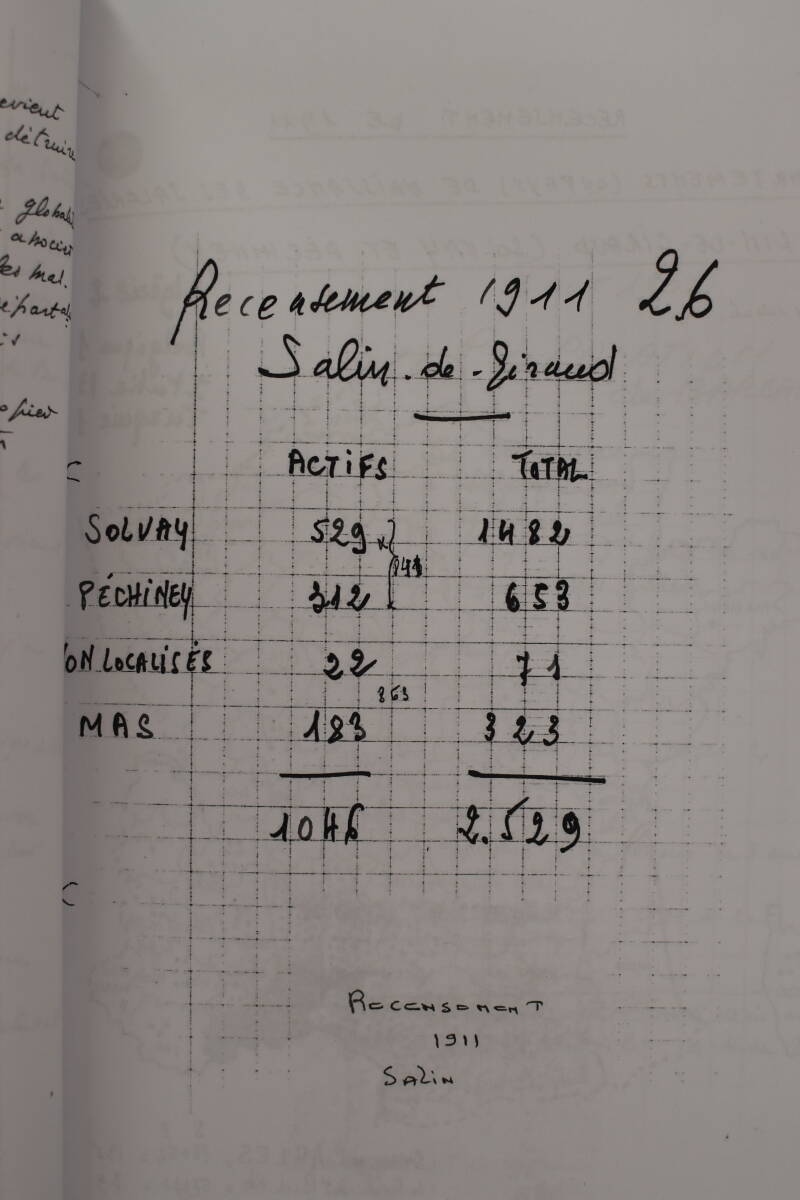 evient
détruire
globale
associa
les mal.
réparta
is
opier
Recensement 1911 26
Salin-de-Giraud
ACTIFS TOTAL
SOLVAY 529 1482
841
PÉCHINEY 312 653
ON LOCALISÉS 22 71
863
MAS 183 323
1046 2.529
RECENSEMENT
1911
SALIN